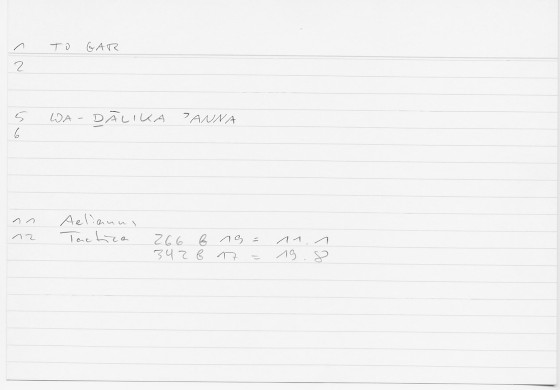 1 TO GAR
2
5 WA-ḎĀLIKA ʾANNA
6
11 Aelianus
12 Tactica 266 B 19 = 11.1
342 B 17 = 19.8